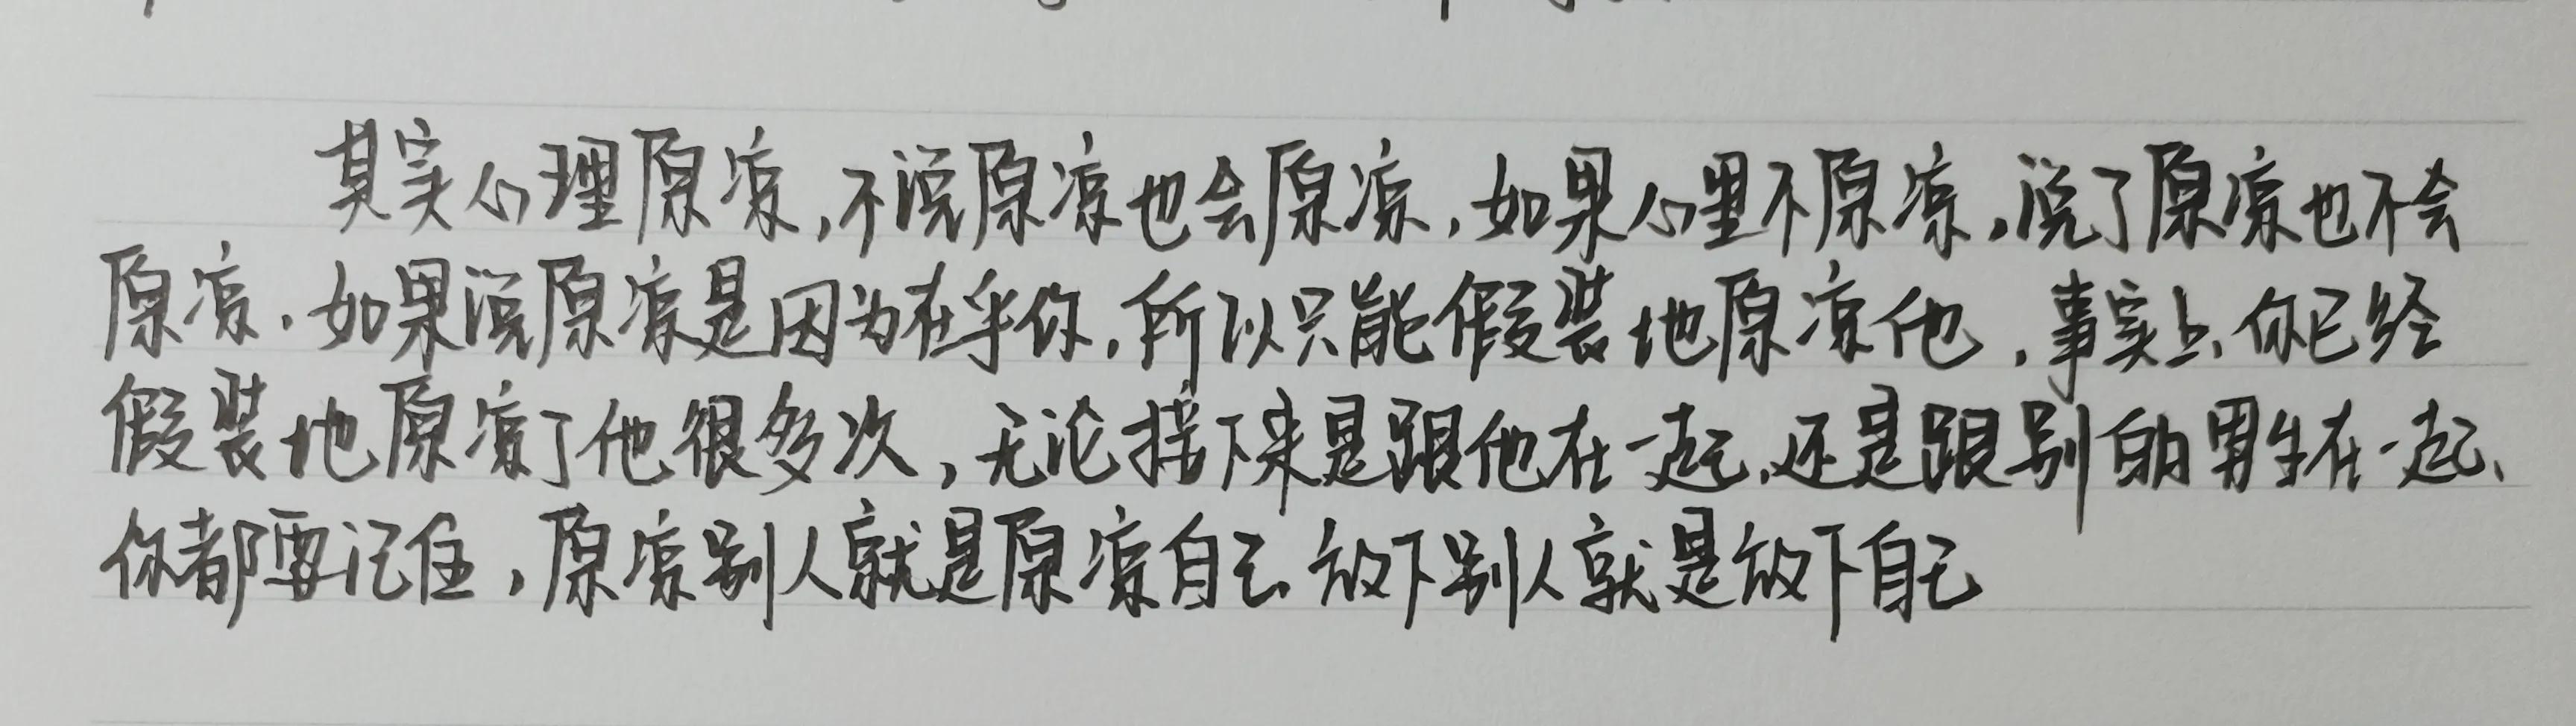 其实心理原凉,不说原凉也会原凉,如果心里不原凉,说了原凉也不会
原凉.如果说原凉是因为在乎你,所以只能假装地原凉他,事实上,你已经
假装地原凉了他很多次,无论接下来是跟他在一起,还是跟别的男生在一起、
你都要记住,原凉别人就是原凉自己、放下别人就是放下自己